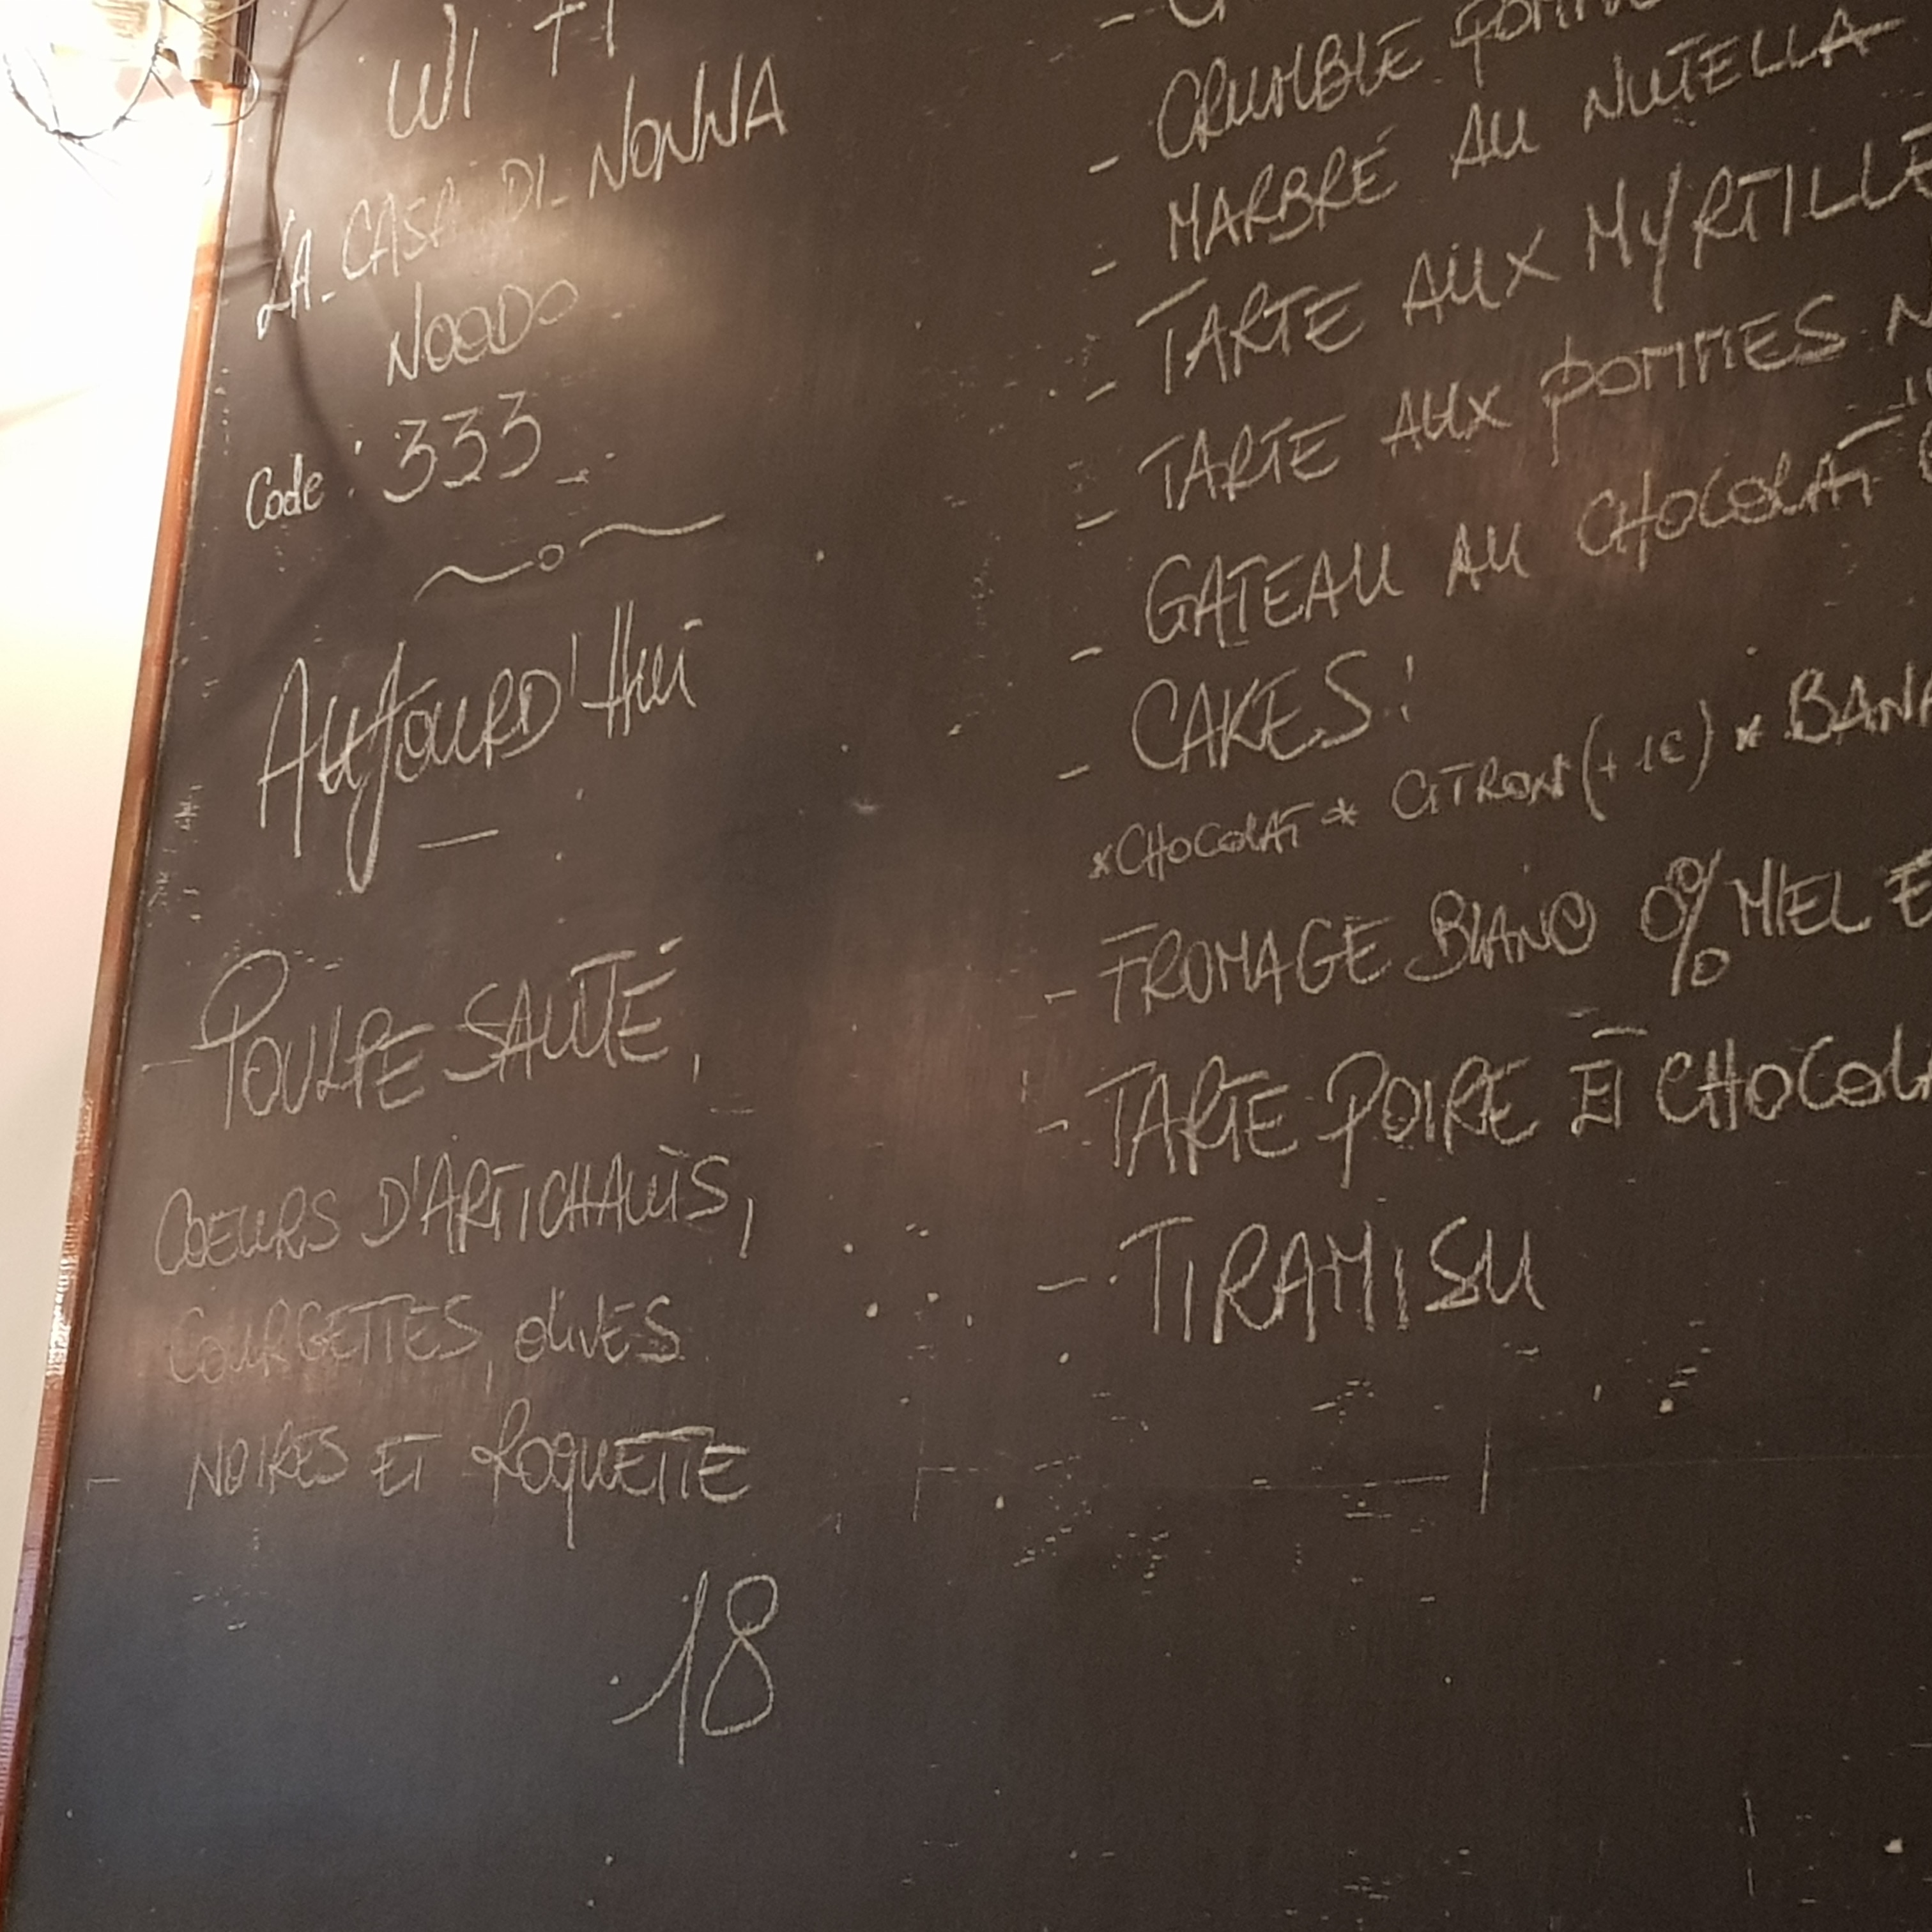 WI FI
LA_CASA_DI_NONNA
NOODO
Code : 333
AUJOURD'HUI
- POULPE SAUTÉ,
COEURS D'ARTICHAUTS,
COURGETTES, OLIVES
NOIRES ET ROQUETTE
18
- CRUMBLE
- MARBRÉ AU NUTELLA
- TARTE AUX MYRTILLE
- TARTE AUX POMMES
- GATEAU AU CHOCOLAT
- CAKES :
*CHOCOLAT * CITRON (+1€) * BANA
- FROMAGE BLANC 0% MIEL E
- TARTE POIRE ET CHOCOLA
- TIRAMISU